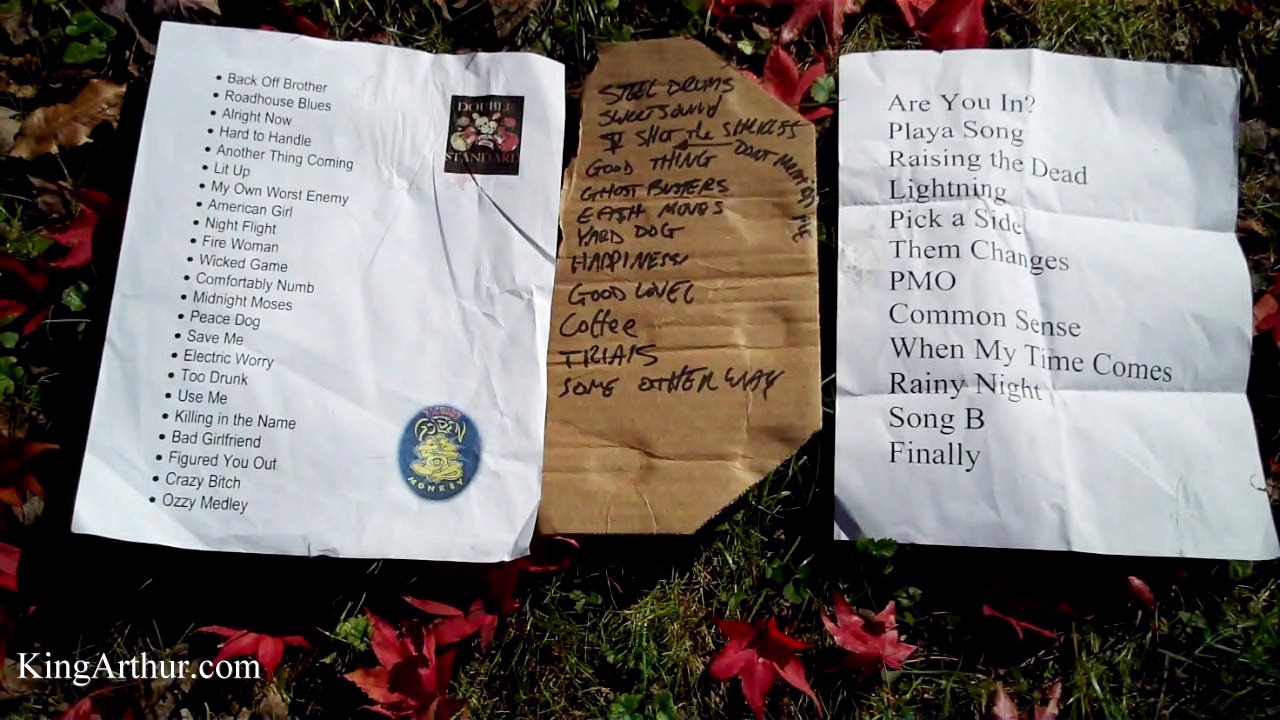 Back Off Brother
Roadhouse Blues
Alright Now
Hard to Handle
Another Thing Coming
Lit Up
My Own Worst Enemy
American Girl
Night Flight
Fire Woman
Wicked Game
Comfortably Numb
Midnight Moses
Peace Dog
Save Me
Electric Worry
Too Drunk
Use Me
Killing in the Name
Bad Girlfriend
Figured You Out
Crazy Bitch
Ozzy Medley
DOUBLE
STANDARD
GOLDEN
MONKEY
STEEL DRUMS
SWEET SOUND
SHOT the
GOOD THING
DONT
ME
GHOST BUSTERS
MOVES
YARD DOG
HAPPINESS
GOOD
Coffee
TRIALS
SOME OTHER WAY
Are You In?
Playa Song
Raising the Dead
Lightning
Pick a Side
Them Changes
PMO
Common Sense
When My Time Comes
Rainy Night
Song B
Finally
KingArthur.com